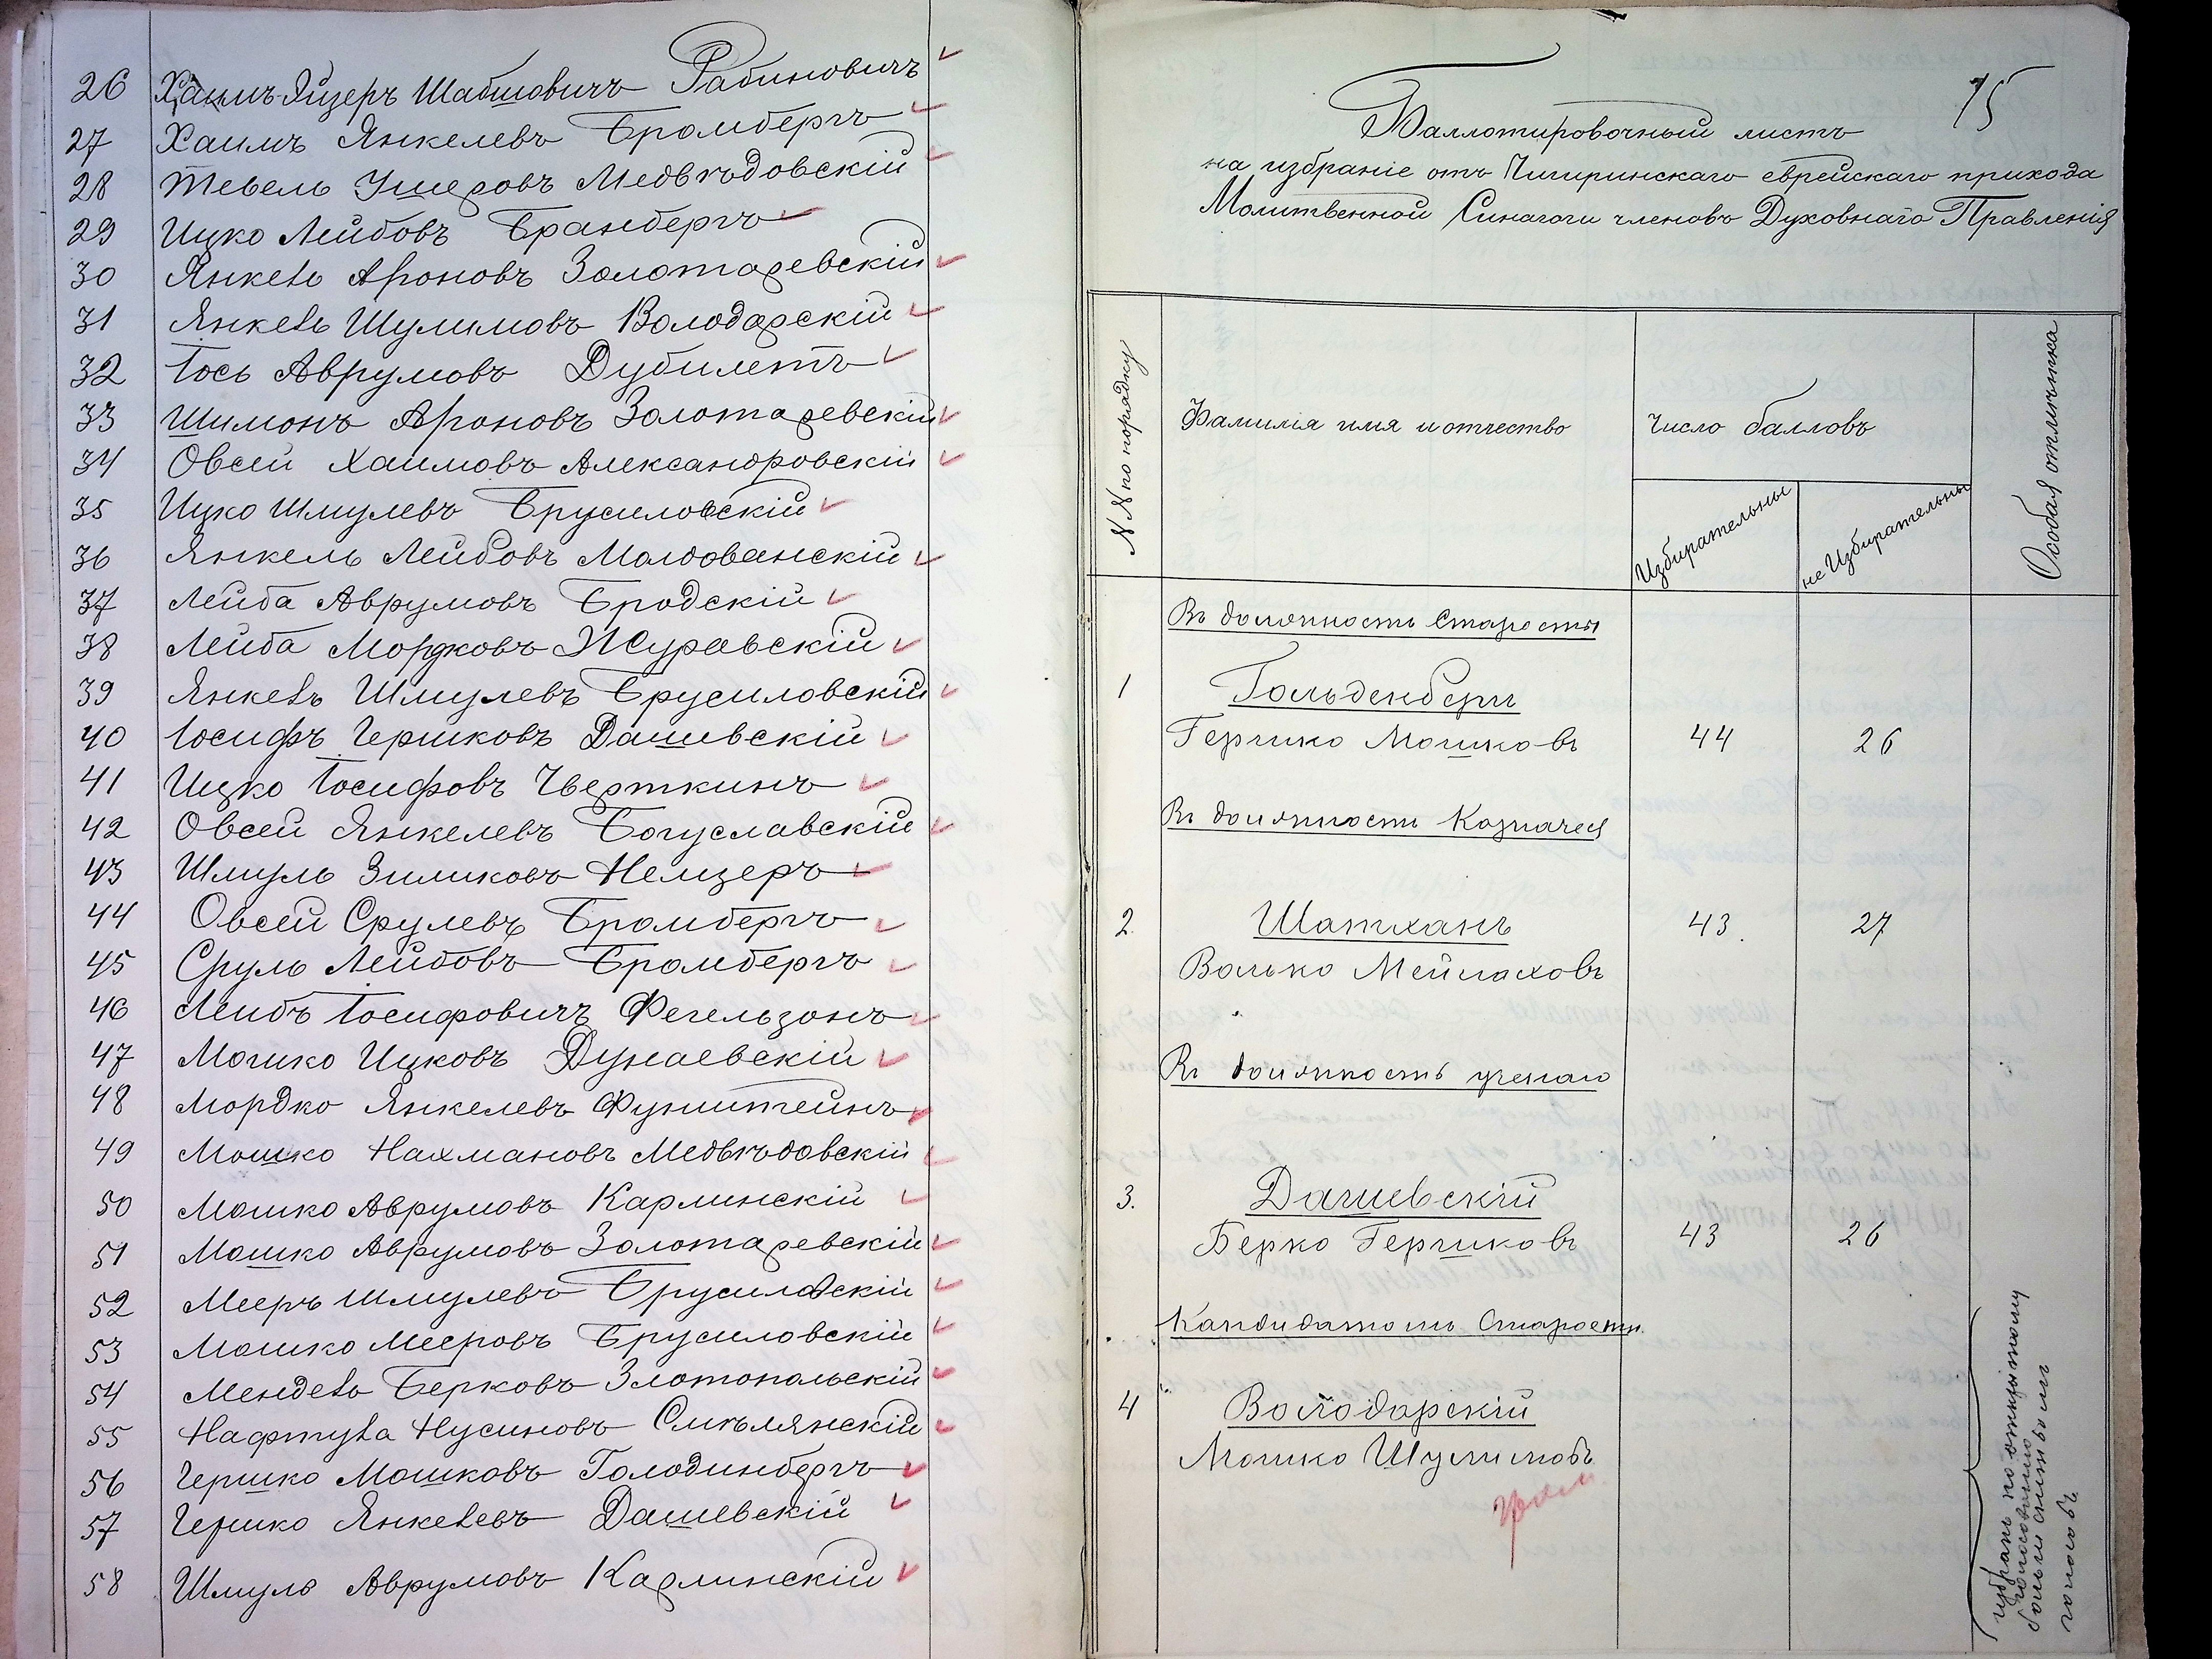 26 Хаимъ-Айзеръ Шабшовичъ Рабиновичъ
27 Хаимъ Янкелевъ Бромбергъ
28 Тевель Ушеровъ Медвѣдовскій
29 Ицко Лейбовъ Бранбергъ
30 Янкель Ароновъ Золотаревскій
31 Янкель Шулимовъ Володарскій
32 Іось Аврумовъ Дубилетъ
33 Шимонъ Ароновъ Золотаревскій
34 Овсей Хаимовъ Александровскій
35 Ицко Шмулевъ Брусиловскій
36 Янкель Лейбовъ Молдованскій
37 Лейба Аврумовъ Бродскій
38 Лейба Мордковъ Журавскій
39 Янкель Шмулевъ Брусиловскій
40 Іосифъ Гершковъ Дашевскій
41 Ицко Іосифовъ Чверткинъ
42 Овсей Янкелевъ Богуславскій
43 Шмуль Зиликовъ Немзеръ
44 Овсей Срулевъ Бромбергъ
45 Сруль Лейбовъ Бромбергъ
46 Лейбъ Іосифовичъ Фегельзонъ
47 Мошко Ицковъ Дунаевскій
48 Мордко Янкелевъ Функштейнъ
49 Мошко Нахмановъ Медвѣдовскій
50 Мошко Аврумовъ Карлинскій
51 Мошко Аврумовъ Золотаревскій
52 Мееръ Шмулевъ Брусиловскій
53 Мошко Мееровъ Брусиловскій
54 Мендель Берковъ Златопольскій
55 Нафтула Нусиновъ Смѣлянскій
56 Гершко Мошковъ Голодинбергъ
57 Гершко Янкелевъ Дашевскій
58 Шмуль Аврумовъ Карлинскій
75
Баллотировочный листъ
на избраніе отъ Чигиринскаго еврейскаго прихода
Молитвенной Синагоги членовъ Духовнаго Правленія
№№ по порядку
Фамилія имя и отчество
Число балловъ
Избирательные
не Избирательны
Особая отмѣтка
Въ должность Старосты
1 Гольденберг
Гершко Мошковъ 44 26
Въ должности Казначея
2. Шатханъ 43. 27
Волько Мейлаховъ
Въ должность ученаго
3. Дашевскій
Берко Гершковъ 43 26
Кандидатомъ Старосты.
4 Володарскій
Мошко Шулимовъ
избранъ по открытому
голосованію
большинствомъ
голосовъ.